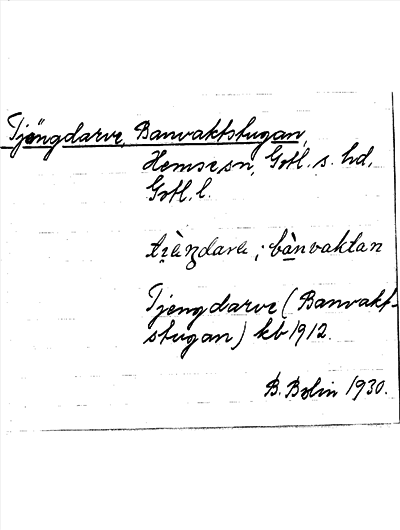 Tjängdarve, Banvaktstugan,
Hemse sn, Gotl. s. hd,
Gotl. l.
bànvaktan
Tjengdarve (Banvakt-
stugan) kb 1912.
B. Bolin 1930.